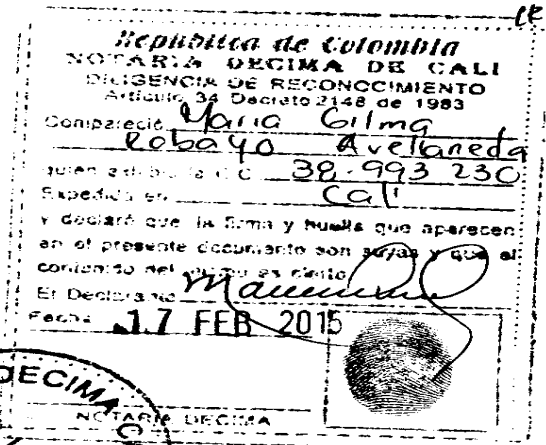 Republica de Colombia
NOTARIA DECIMA DE CALI
DILIGENCIA DE RECONOCIMIENTO
Articulo 34 Decreto 2148 de 1983
Compareció Maria Gilma
Robayo Avellaneda
quien exhibió la C.C. 38.993 230
Expedida en Cali
y declaró que la firma y huella que aparecen
en el presente documento son suyas y que el
contenido del mismo es cierto
El Declarante
Fecha 17 FEB 2015
DECIMA
NOTARIA DECIMA